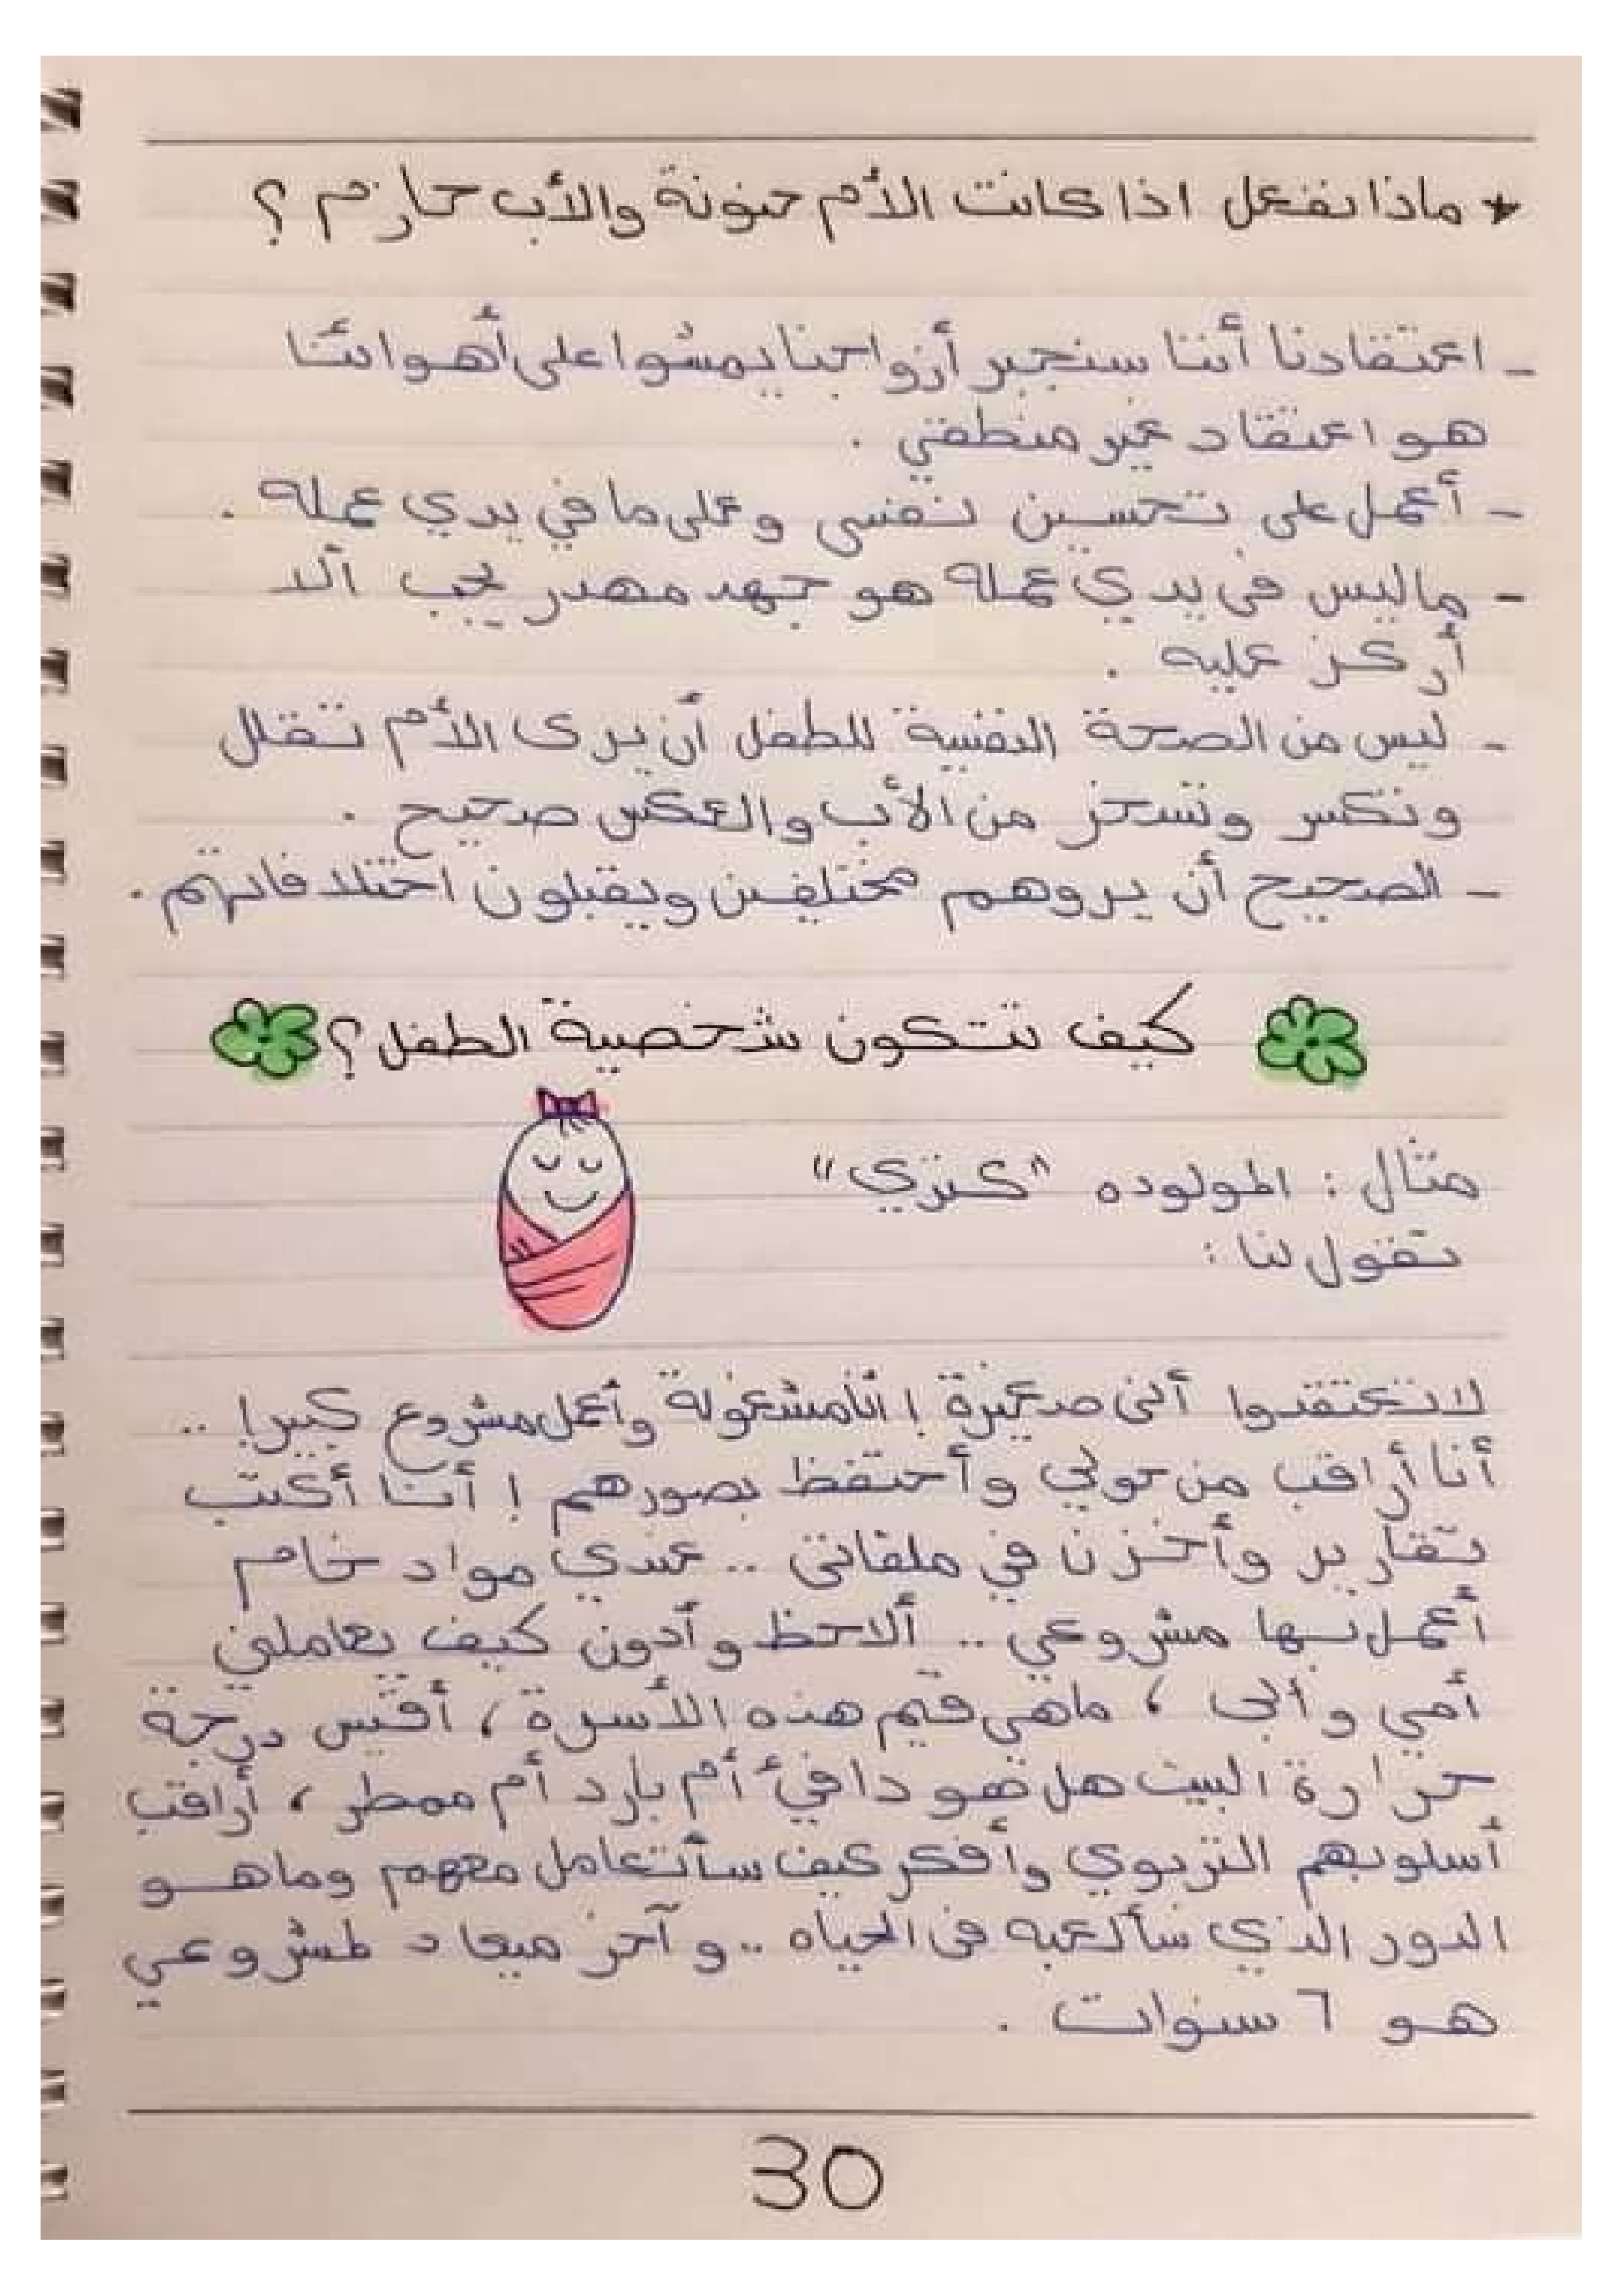 * ماذا نفعل اذا كانت الأم حنونة والأب حازم ؟
- اعتقادنا أننا سنجبر أزواجنا يمشوا على أهوائنا
هو اعتقاد غير منطقي .
- أعمل على تحسين نفسى وعلى ما في يدي عمله .
- ماليس فى يدي عمله هو جهد مهدر يجب ألا
أركز عليه .
- ليس من الصحة النفسية للطفل أن يرى الأم تقلل
وتكسر وتسخر من الأب والعكس صحيح .
- الصحيح أن يروهم مختلفين ويقبلون اختلافاتهم .
كيف تتكون شخصية الطفل ؟
مثال : المولوده "كنزي"
تقول لنا :
لا تعتقدوا أنى صغيرة ! أنا مشغولة وأعمل مشروع كبير! ..
أنا أراقب من حولي وأحتفظ بصورهم ! أنا أكتب
تقارير وأخزن في ملفاتى .. عندي مواد خام
أعمل بها مشروعي .. ألاحظ وأدون كيف يعاملنى
أمي وأبى ، ماهى قيم هذه الأسرة ، أقيس درجة
حرارة البيت هل هو دافئ أم بارد أم ممطر ، أراقب
أسلوبهم التربوي وأفكر كيف سأتعامل معهم وماهو
الدور الذي سألعبه فى الحياه .. و آخر ميعاد لمشروعي
هو ٦ سنوات .
30